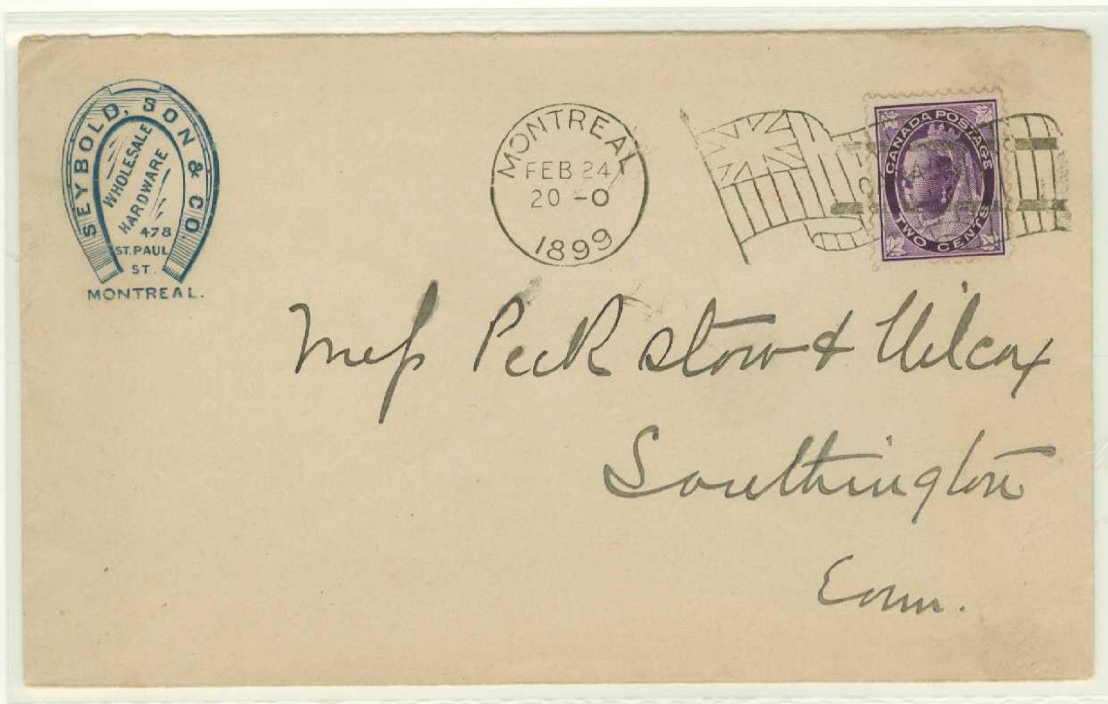 SEYBOLD, SON & CO
WHOLESALE
HARDWARE
478
ST. PAUL
ST.
MONTREAL.
MONTREAL
FEB 24
20 - 0
1899
CANADA POSTAGE
TWO CENTS
Mess Peck Stow & Wilcox
Southington
Conn.